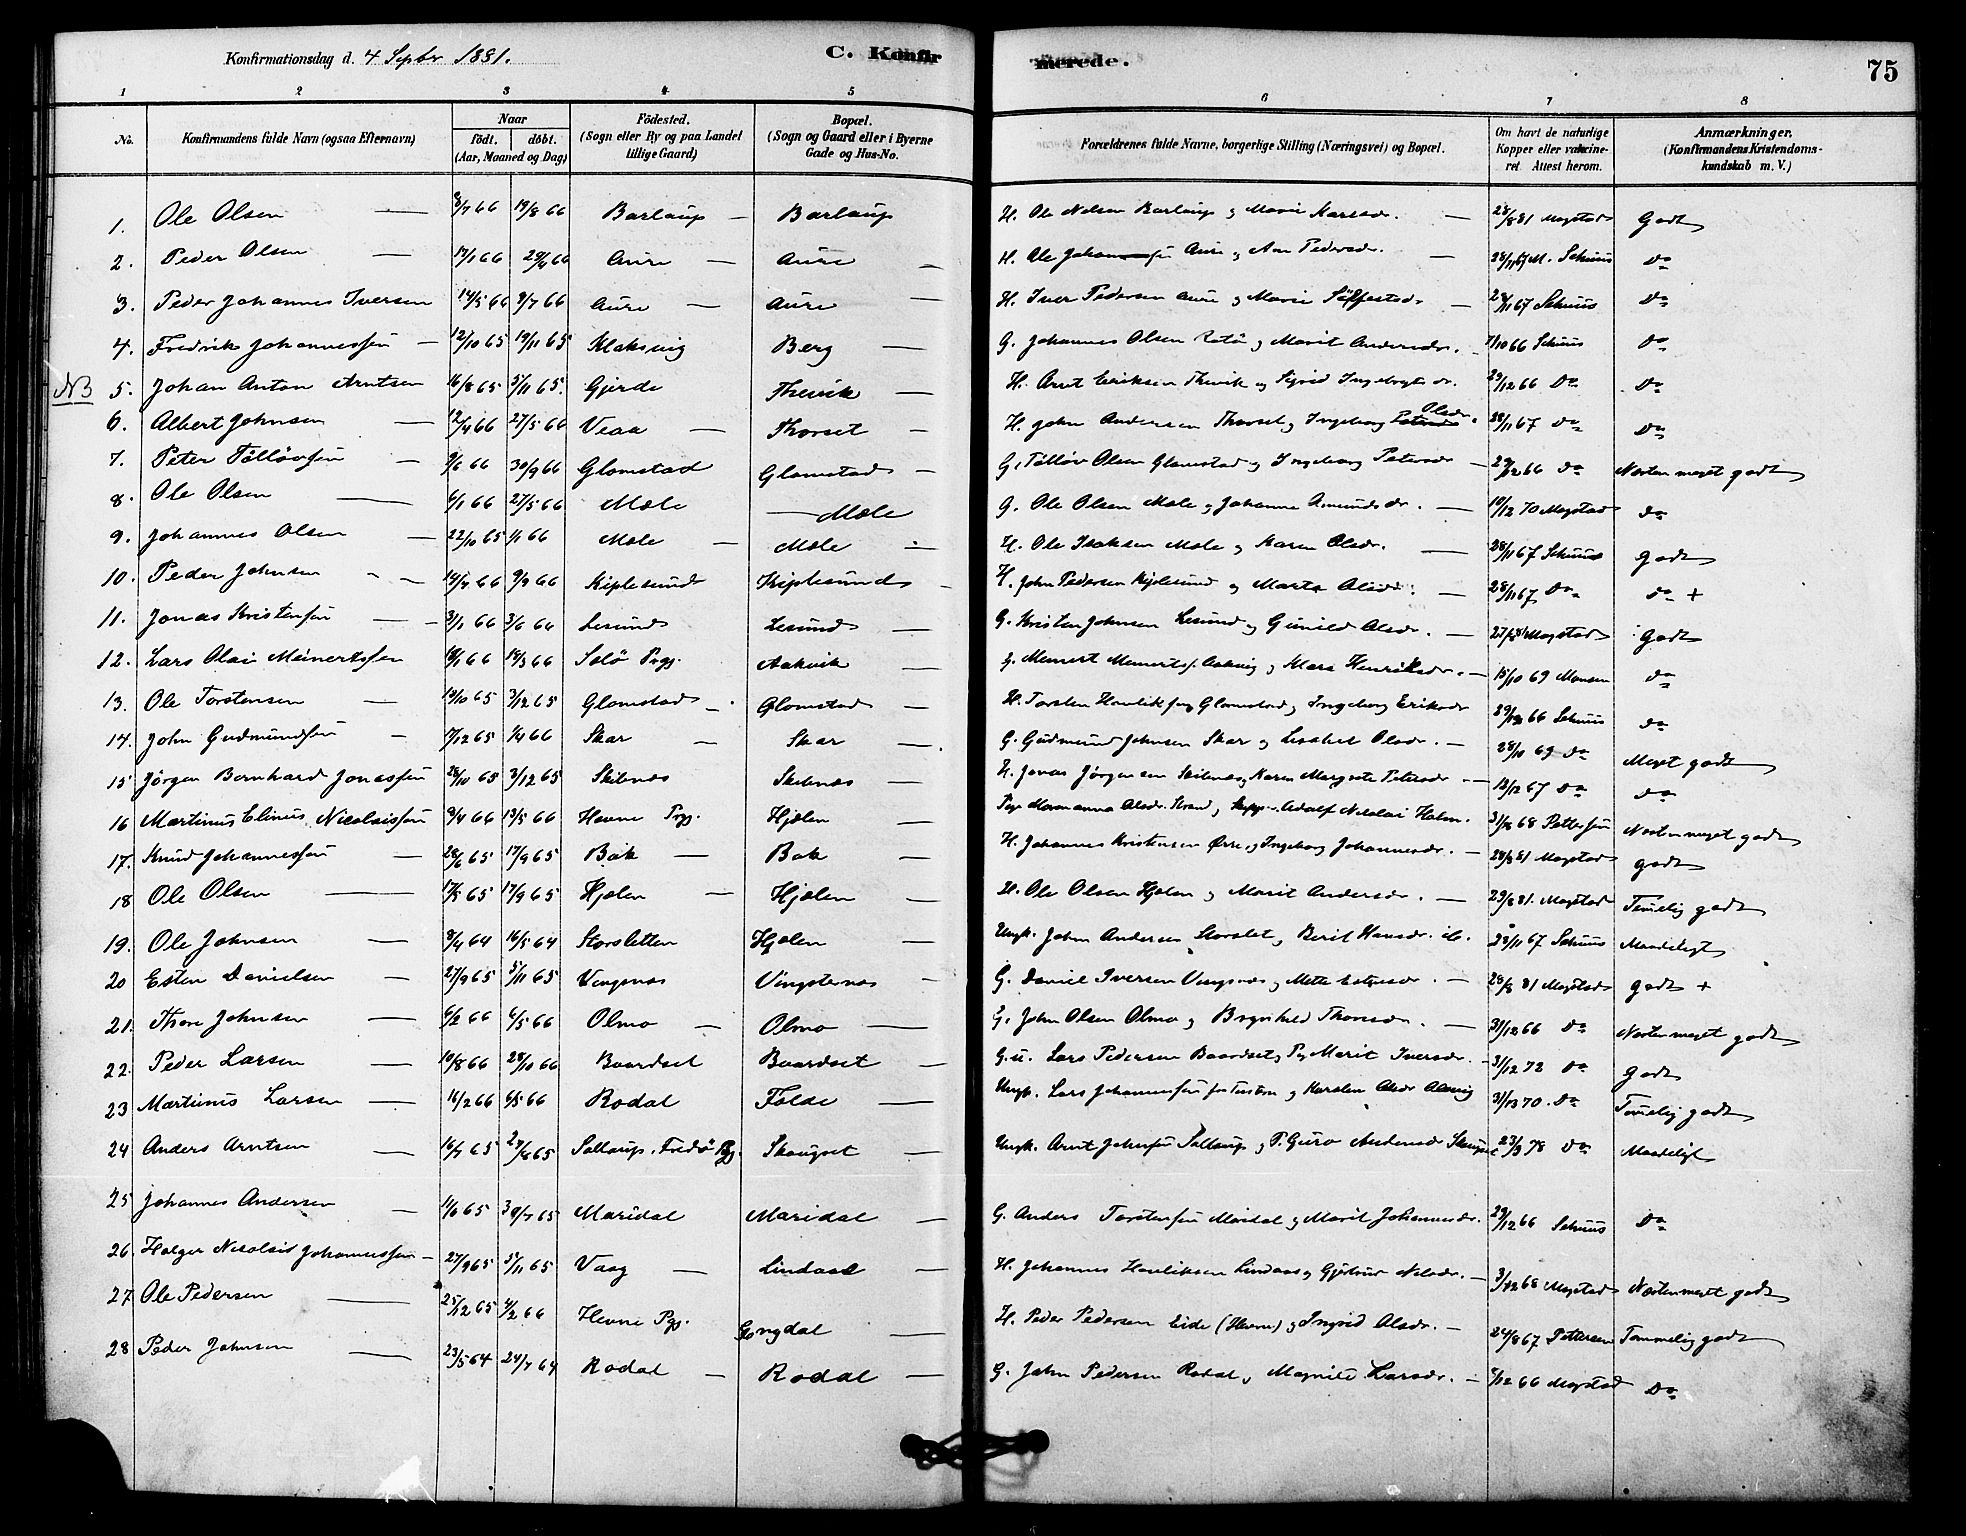 Konfirmationsdag d. 4 Septbr 1881.
C. Konfirmerede.
75
1 2 3 4 5 6 7 8
No. Konfirmandens fulde Navn (ogsaa Efternavn) Naar födt. döbt. (Aar, Maaned og Dag) Födested. (Sogn eller By og paa Landet tillige Gaard) Bopæl. (Sogn og Gaard eller i Byerne Gade og Hus-No. Forældrenes fulde Navne, borgerlige Stilling (Næringsvei) og Bopæl. Om havt de naturlige Kopper eller vakcineret. Attest herom. Anmærkninger. (Konfirmandens Kristendomskundskab m. V.)
1. Ole Olsen — 8/7 66 19/8 66 Barlaup — Barlaup H. Ole Nelsen Barlaup og Marie Larsdr. — 28/8 81 Magstad Godt
2. Peder Olsen — 17/1 66 29/4 66 Aure — Aure — H. Ole Aure og Ane Pedersdr. — M. Schuus Do
3. Peder Johannes Iversen 14/5 66 8/7 66 Aure — Aure — H. Iver Pedersen Aure og Marie — 28/11 67 Schuus Do
4. Fredrik Johannessen — 12/10 65 19/11 65 Klaksvig Berg — G. Johannes Olsen og Marit Andersdr. 7/10 66 Schuus Do
NB 5. Johan Anton Arntsen 16/8 65 5/11 65. Gjerde Thevik — H. Arnt Eriksen Thevik og Sigrid Ingebrigtsdr. 29/12 66 Do Do
6. Albert Johnsen — 12/4 66 27/5 66 Veaa — Thorset — H. John Andersen Thorset og Ingeborg Olsdr. 28/11 67 Do Do
7. Peter Tölløvsen — 9/6 66 30/9 66 Glomstad Glomstad — G. Tölløv Olsen Glomstad og Ingeborg Petersdr — 29/12 66 Do Næsten meget godt
8. Ole Olsen — 6/1 66 27/5 66 Mæle — Mæle G. Ole Olsen Mæle og Johanna Amundsdr. — 10/12 70 Magstad Do
9. Johannes Olsen — 22/10 65 1/1 66 Mæle — Mæle — H. Ole Isaksen Mæle og Karen Olsdr. — 28/11 67 Schuus Godt
10. Peder Johnsen — 14/7 66 9/9 66 Kiplesund Kiplesund — H. John Pedersen Kiplesund og Marta Olsdr. — 28/11 67 Do Do +
11. Jonas Kristensen — 3/1 66 3/6 66 Lesund Lesund — G. Kristen Johnsen Lesund og Gunild Olsdr. — Magstad Godt
12. Lars Olai Meinertsen 18/1 66 18/3 66 Solö Prgj. Aakvik — G. Meinert Meinerts. Aakvig og Klara Henriksdr. — 15/10 69 Monsen Do
13. Ole Torstensen — 19/10 65 3/12 65 Glomstad — Glomstad — H. Torsten Henriksen Glomstad og Ingeborg Eriksdr 29/12 66 Schuus Do
14. John Gudmundsen — 17/12 65 1/4 66 Skar — Skar — G. Gudmund Johnsen Skar og Lisabet Olsdr. — 28/10 69 Do Meget godt
15 Jørgen Bernhard Jonassen 28/10 65 3/12 65 Skilnæs Skilnæs — H. Jonas Jørgensen Skilnæs og Karen Margrete Petersdr — 12/12 67 Do Do
16 Martinus Elinus Nicolaissen 9/4 66 13/5 66 Hevne Prgj. Hjælen — Pige Marianna Olsdr. Strand, Adolf Nikolai Holm. 31/8 68 Pettersen Næsten meget godt
17. Knud Johannessen — 28/6 65 17/9 65 Bak — Bak — H. Johannes Kristensen Ørre og Ingeborg Johannesdr. — 28/8 81 Magstad Godt
18 Ole Olsen — 17/8 65 17/9 65 Hjælen — Hjælen — H. Ole Olsen Hjælen og Marit Andersdr. — 29/8 81. Magstad Temelig godt
19. Ole Johnsen — 8/4 64 16/5 64 Storsletten Hjælen — Ungk. John Andersen Storslet, Berit Hansdr. ib. 28/11 67 Schuus Maadeligt
20 Esten Danielsen — 27/9 65 5/11 65 Vingnæs Vingsternæs — G. Daniel Iversen Vingnæs og Mette Estensdr. — 28/8 81 Magstad Godt +
21. Thore Johnsen — 6/2 66 6/5 66 Olmo — Olmo — G. John Olsen Olmo og Brynhild Thoresdr. — 31/12 66 Do Næsten meget godt
22. Peder Larsen — 10/8 66 28/10 66 Baardset Baardset — G.u. Lars Pedersen Baardset, P. Marit Iversdr. — 31/12 72 Do Godt
23 Martinus Larsen — 16/2 66 6/5 66 Rodal Folde — Ungk. Lars Johannessen og Karelen Olsdr 31/12 70. Do Temelig godt
24 Anders Arntsen — 16/7 65 27/8 65 Sollaup, Fredö Pgj. Skougset — Ungk. Arnt Johnsen Sollaup og P. Guro Andersdr Skougset 23/9 78 Do Maadeligt
25 Johannes Andersen — 11/6 65 30/7 65 Maridal Maridal — G. Anders Torstensen Maridal og Marit Johannesdr. 29/12 66 Schuus Do
26. Holger Nikolais Johannessen — 27/9 65 5/11 65 Vaag — Lindaas — H. Johannes Henriksen Lindaas og Gjertrud Nilsdr. — 3/12 68 Magstad Næsten meget godt
27 Ole Pedersen — 25/12 65 4/2 66 Hevne Pgj. Gongdal — H. Peder Pedersen Eide (Hevne) og Ingrid Olsdr. — 24/8 67 Pettersen Temmelig godt
28 Peder Johnsen — 23/5 64 24/7 64 Rodal — Rodal — G. John Pedersen Rodal og Magnild Larsdr. — 7/12 66 Magstad Do